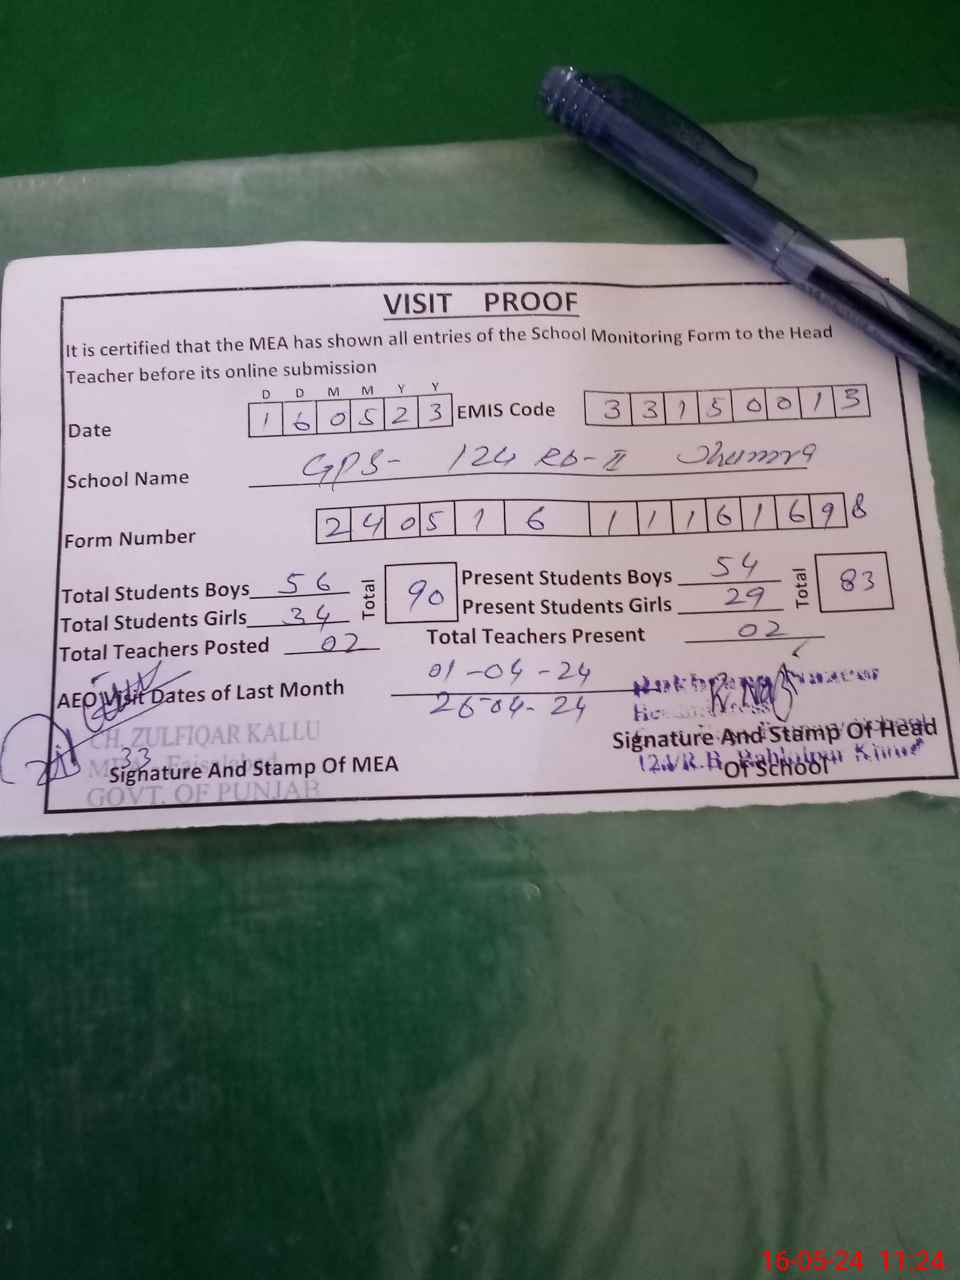 VISIT PROOF
It is certified that the MEA has shown all entries of the School Monitoring Form to the Head
Teacher before its online submission
D D M M Y Y
Date 1 6 0 5 2 3 EMIS Code 3 3 1 5 0 0 1 3
School Name GPS- 124 RB-II Jhumra
Form Number 2 4 0 5 1 6 1 1 1 6 1 6 9 8
Total Students Boys 56 Total 90 Present Students Boys 54 Total 83
Total Students Girls 34 Present Students Girls 29
Total Teachers Posted 02 Total Teachers Present 02
AEO Visit Dates of Last Month 01-04-24
26-04-24
CH. ZULFIQAR KALLU
33
Signature And Stamp Of MEA
GOVT. OF PUNJAB
Signature And Stamp Of Head
Of School
16-05-24 11:24